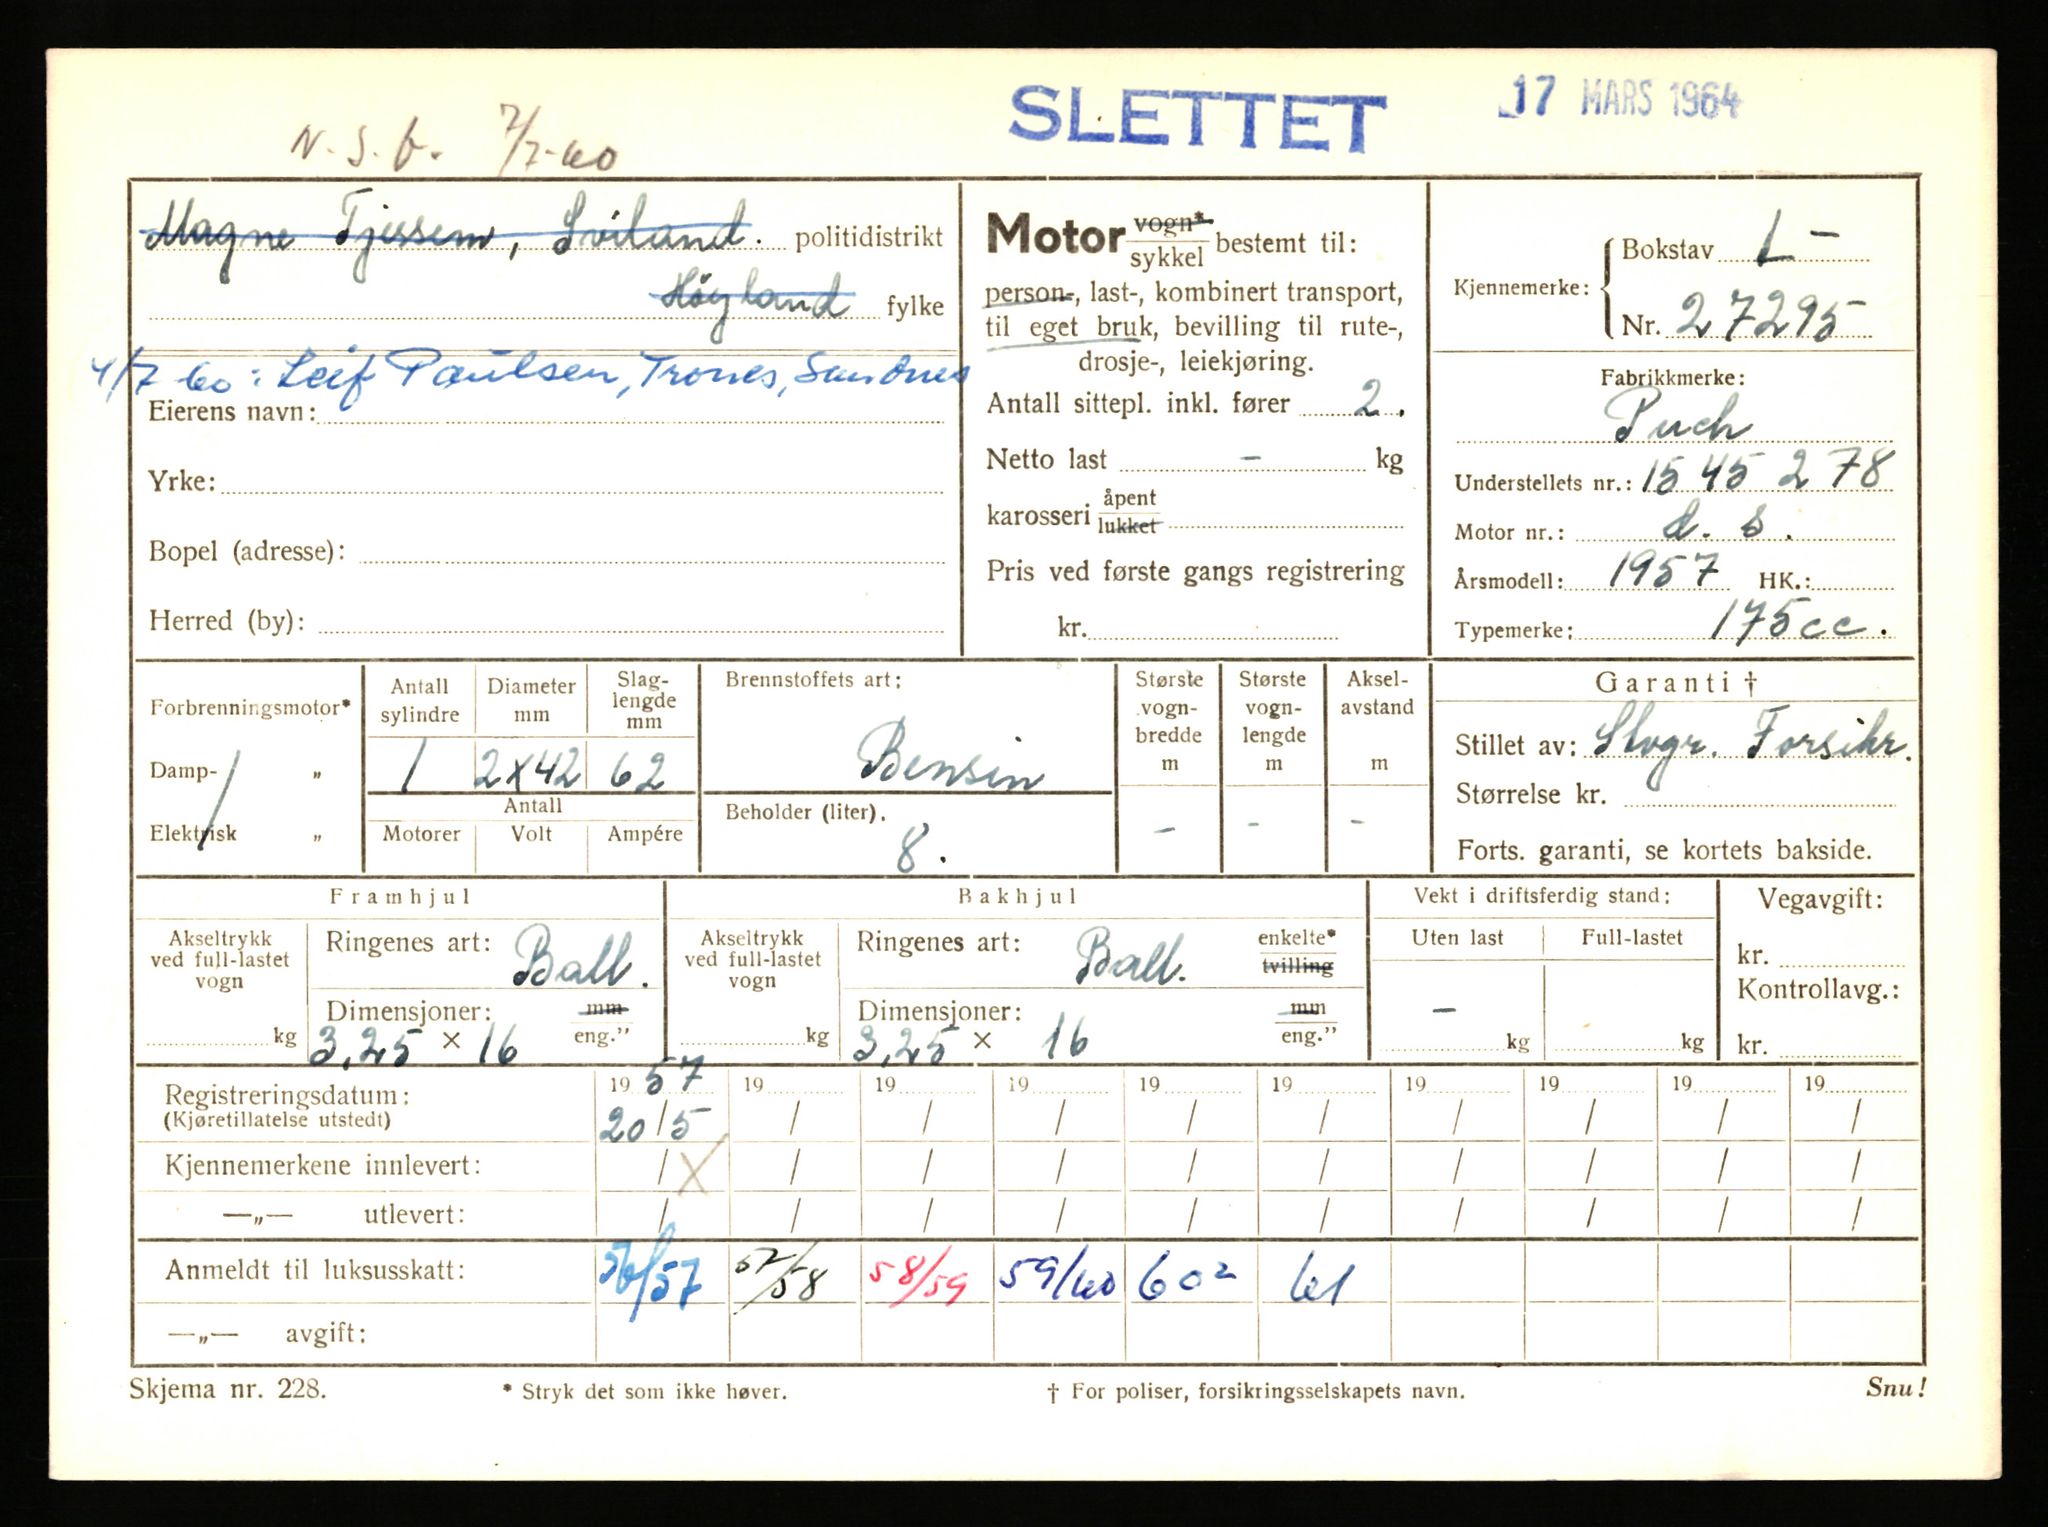 SLETTET 17 MARS 1964
N.S.b. 7/7-60
Magne Tjessem, Sviland. politidistrikt
Høyland fylke
4/7 60: Leif Paulsen, Trones, Sandnes
Eierens navn:
Yrke:
Bopel (adresse):
Herred (by):
Motor vogn* / sykkel bestemt til:
person-, last-, kombinert transport,
til eget bruk, bevilling til rute-,
drosje-, leiekjøring.
Antall sittepl. inkl. fører 2.
Netto last - kg
karosseri åpent / lukket
Pris ved første gangs registrering
kr.
Kjennemerke: Bokstav L-
Nr. 27295
Fabrikkmerke:
Puch
Understellets nr.: 1545278
Motor nr.: d. s.
Årsmodell: 1957 HK.:
Typemerke: 175cc.
Forbrenningsmotor*
Damp- „
Elektrisk „
Antall sylindre Diameter mm Slag-lengde mm
1 2x42 62
Antall
Motorer Volt Ampére
Brennstoffets art:
Bensin
Beholder (liter).
8.
Største vogn-bredde m Største vogn-lengde m Aksel-avstand m
- - -
Garanti †
Stillet av: Stvgr. Forsikr.
Størrelse kr.
Forts. garanti, se kortets bakside.
Framhjul
Akseltrykk ved full-lastet vogn
kg
Ringenes art: Ball.
Dimensjoner: mm / eng.”
3,25 × 16
Bakhjul
Akseltrykk ved full-lastet vogn
kg
Ringenes art: Ball. enkelte* / tvilling
Dimensjoner: mm / eng.”
3,25 × 16
Vekt i driftsferdig stand:
Uten last Full-lastet
-
kg kg
Vegavgift:
kr.
Kontrollavg.:
kr.
19 57 19 19 19 19 19 19 19 19 19
Registreringsdatum: 20/5 / / / / / / / / /
(Kjøretillatelse utstedt)
Kjennemerkene innlevert: / X / / / / / / / / /
—„— utlevert: / / / / / / / / / /
Anmeldt til luksusskatt: 56/57 57/58 58/59 59/60 60² 61
—„— avgift:
Skjema nr. 228. * Stryk det som ikke høver. † For poliser, forsikringsselskapets navn. Snu!